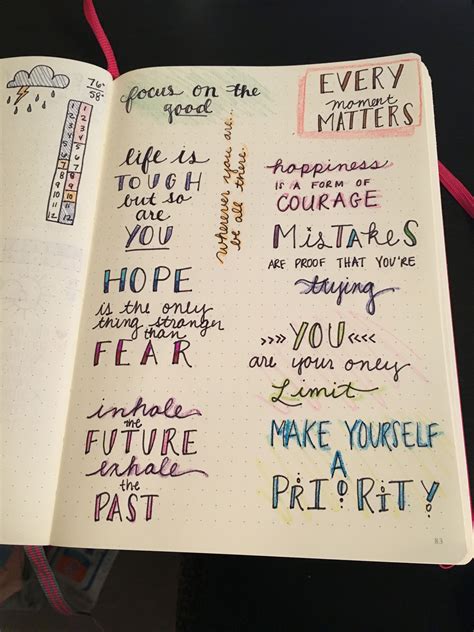 76°
58°
focus on the
good
EVERY
moment
MATTERS
wherever you are...
be all there.
life is
TOUGH
but so
are
YOU
happiness
IS A FORM OF
COURAGE
MISTAKES
ARE PROOF THAT YOU'RE
trying
HOPE
is the only
thing stronger
than
FEAR
>>> YOU <<<
are your only
Limit
inhale
the
FUTURE
exhale
the
PAST
MAKE YOURSELF
A
PRIORITY!
83